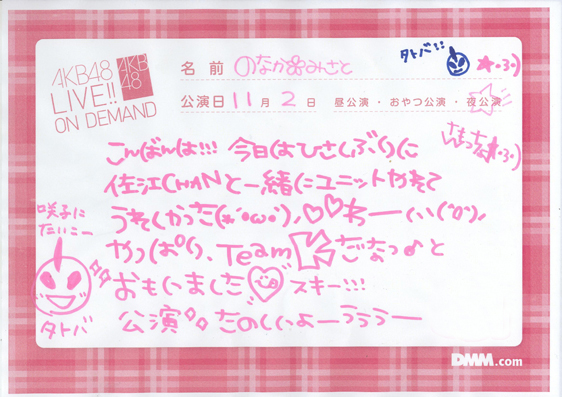 AKB48
LIVE!!
ON DEMAND
AKB
48
名前 のなか みさと
タトバ!!
★・3・)
公演日 11月2日 昼公演・おやつ公演・夜公演
・3・)
こんばんは!!! 今日はひさしぶりに
佐江CHANと一緒にユニットやれて
うれしかった(*´・ω・`)ノ♡♡わーいいい(^o^)ノ
やっぱり、Team Kだなっ♪と
おもいました♡スキー!!!
公演 たのしいよーうううー
咲子に
たいこー
タタ
タトバ
DMM.com